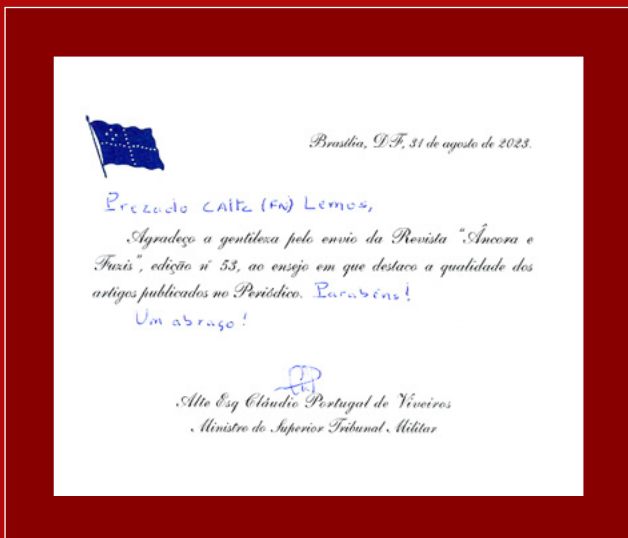 Brasília, D.F, 31 de agosto de 2023.
Prezado CAlte (FN) Lemos,
Agradeço a gentileza pelo envio da Revista "Âncora e
Fuzis", edição nº 53, ao ensejo em que destaco a qualidade dos
artigos publicados no Periódico. Parabéns!
Um abraço!
Alte Esq Cláudio Portugal de Viveiros
Ministro do Superior Tribunal Militar